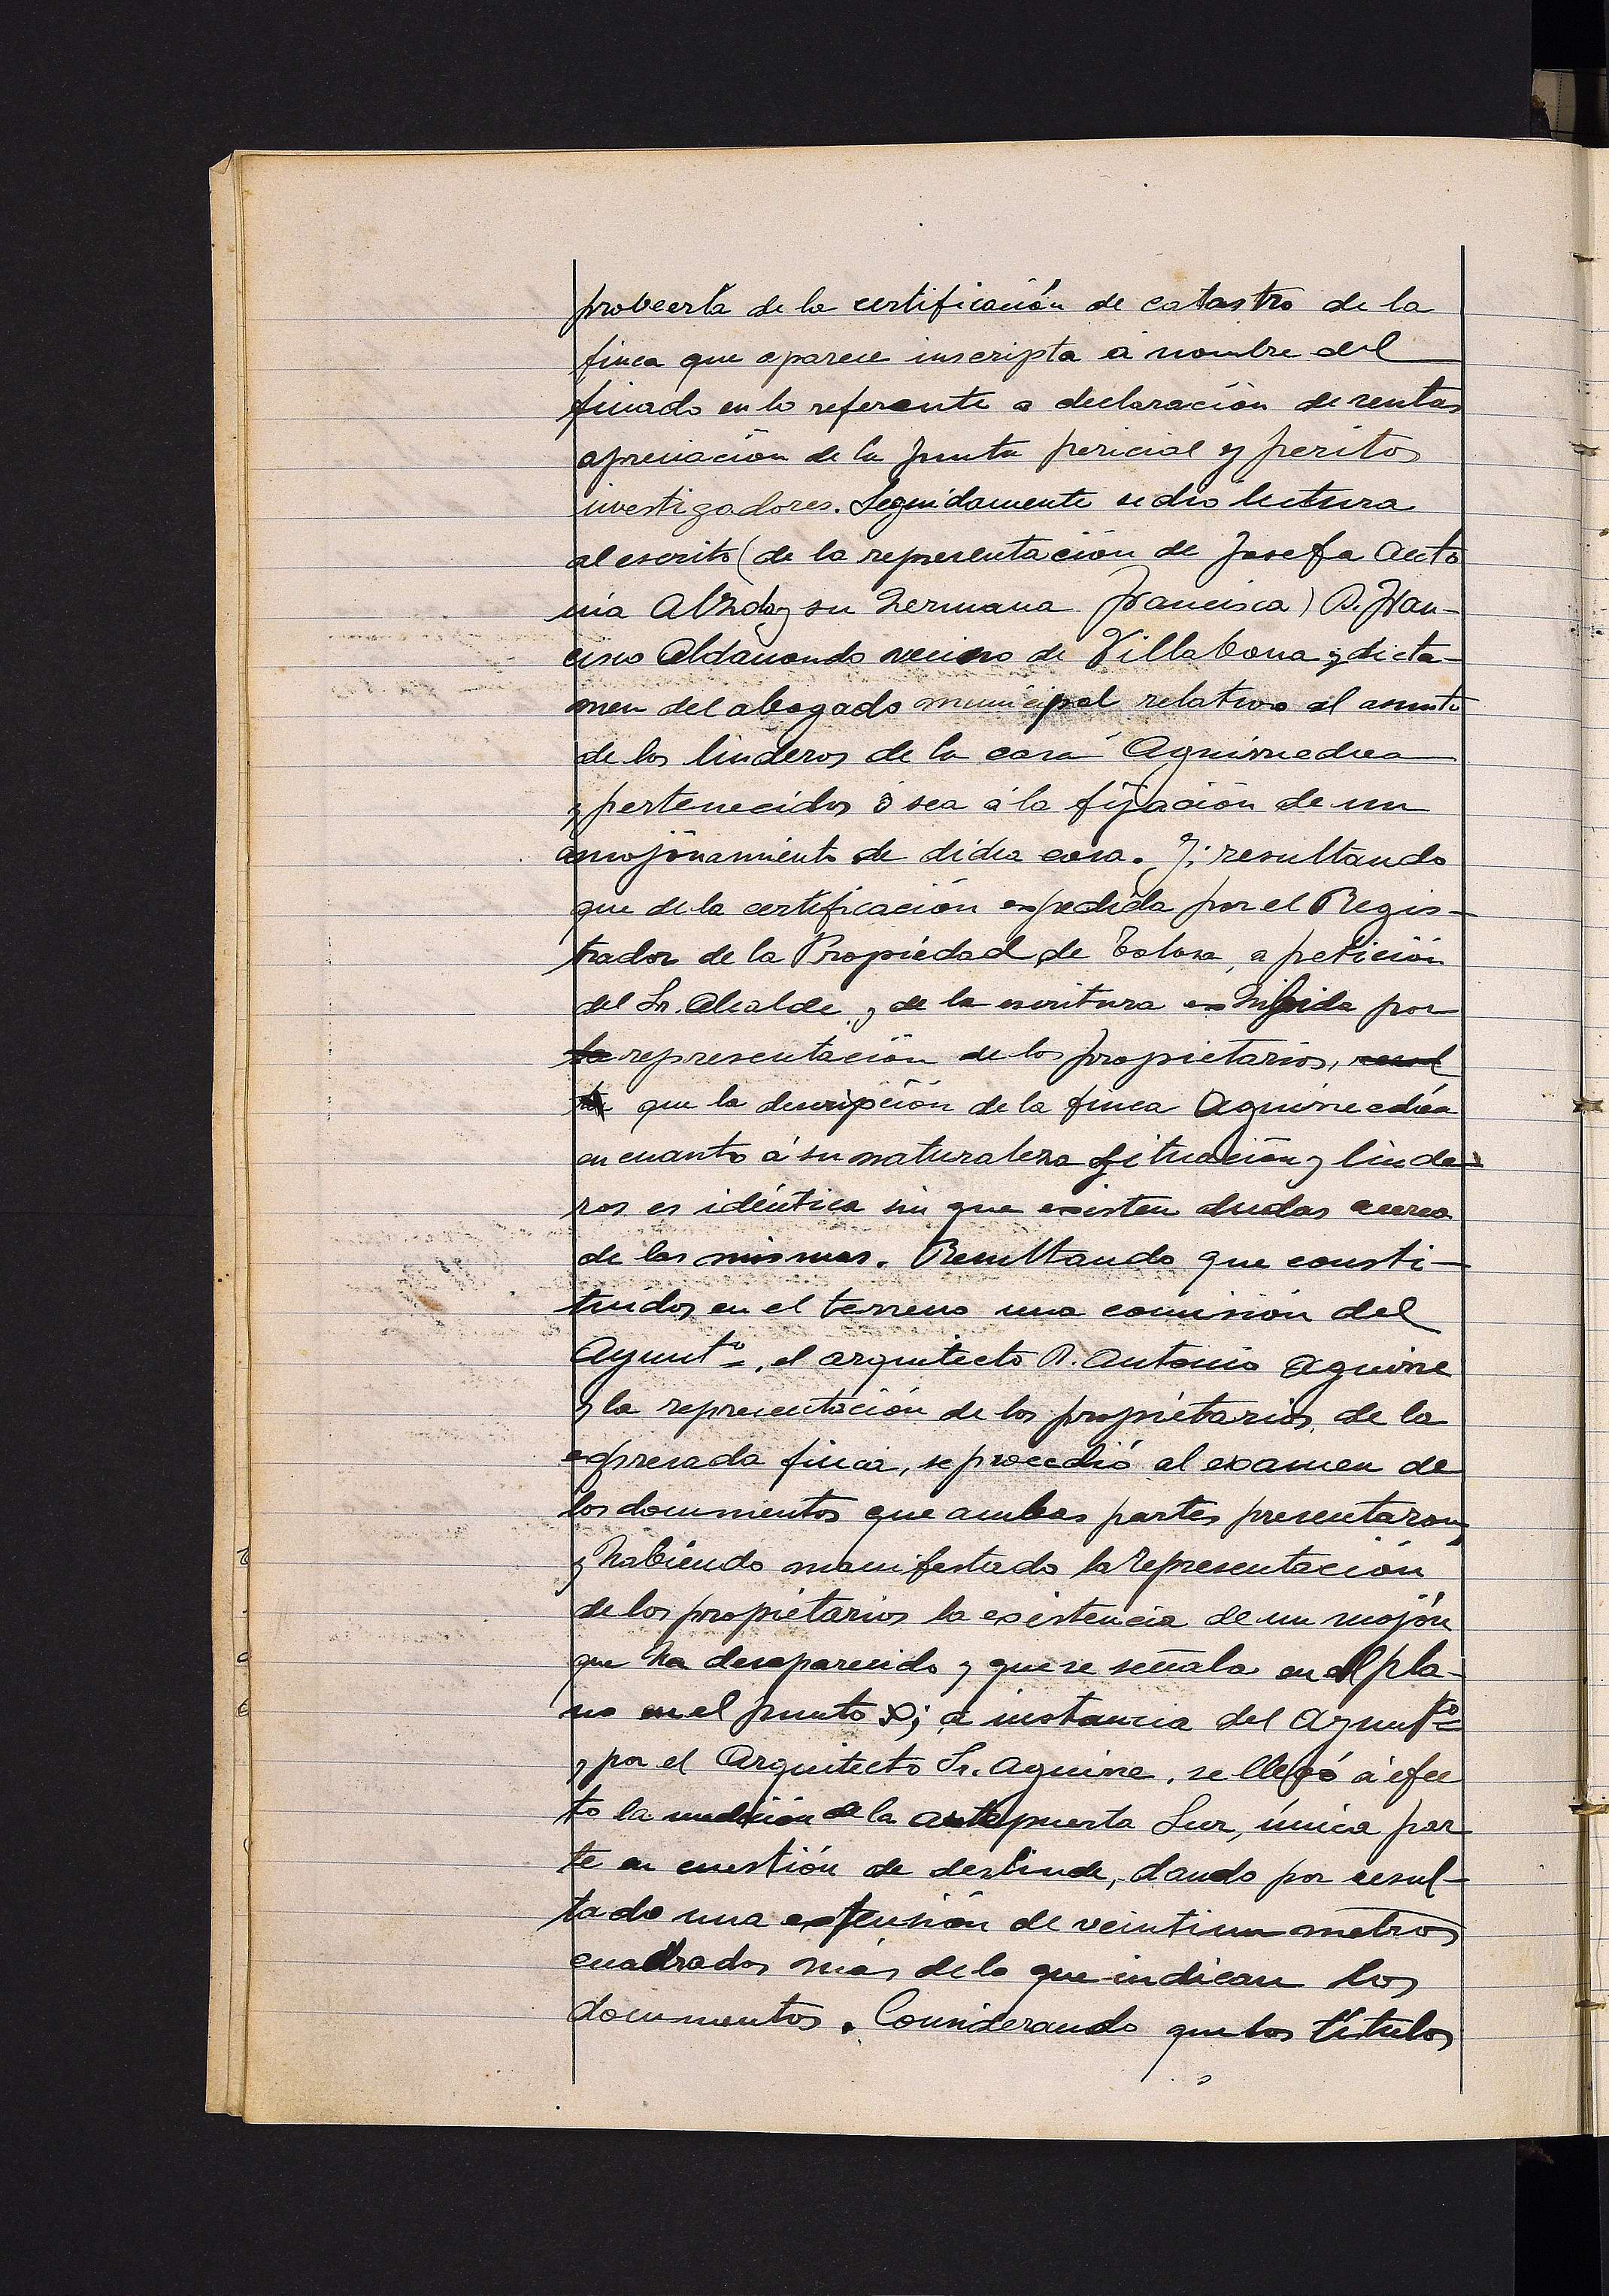 proveerla de la certificación de catastro de la
finca que aparece inscripta á nombre del
finado en lo referente a declaración de rentas
apreciación de la Junta pericial y peritos
investigadores. Seguidamente se dió lectura
al escrito (de la representación de Josefa Anto
nia y su hermana Francisca) D. Fran-
cisco Aldanondo vecino de Villabona y dicta-
men del abogado municipal relativo al asunto
de los linderos de la casa Aguirrechea
y pertenecidos ó sea á la fijación de un
amojonamiento de dicha casa. Y; resultando
que de la certificación expedida por el Regis-
trador de la Propiedad de Tolosa, a petición
del Sr. Alcalde y de la escritura exhibida por
la representación de los propietarios,
que la descripción de la finca Aguirrechea
en cuanto á su naturaleza situación y linde-
ros es idéntica sin que existen dudas acerca
de las mismas. Resultando que consti-
tuidos en el terreno una comisión del
Ayuntº, el arquitecto D. Antonio Aguirre
y la representación de los propietarios de la
expresada finca, se procedió al examen de
los documentos que ambas partes presentaron
y habiendo manifestado la representación
de los propietarios la existencia de un mojón
que ha desaparecido y que se señala en el pla-
no en el punto X; á instancia del Ayuntº
y por el Arquitecto Sr. Aguirre, se llevó á efec
to la medición de la antepuerta Sur, única par
te en cuestión de deslinde, dando por resul-
tado una extensión de veintiun metros
cuadrados más de lo que indican los
documentos. Considerando que los títulos